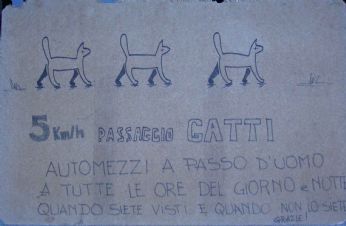 5 Km/h PASSAGGIO GATTI
AUTOMEZZI A PASSO D'UOMO
A TUTTE LE ORE DEL GIORNO e NOTTE
QUANDO SIETE VISTI E QUANDO NON LO SIETE
GRAZIE!